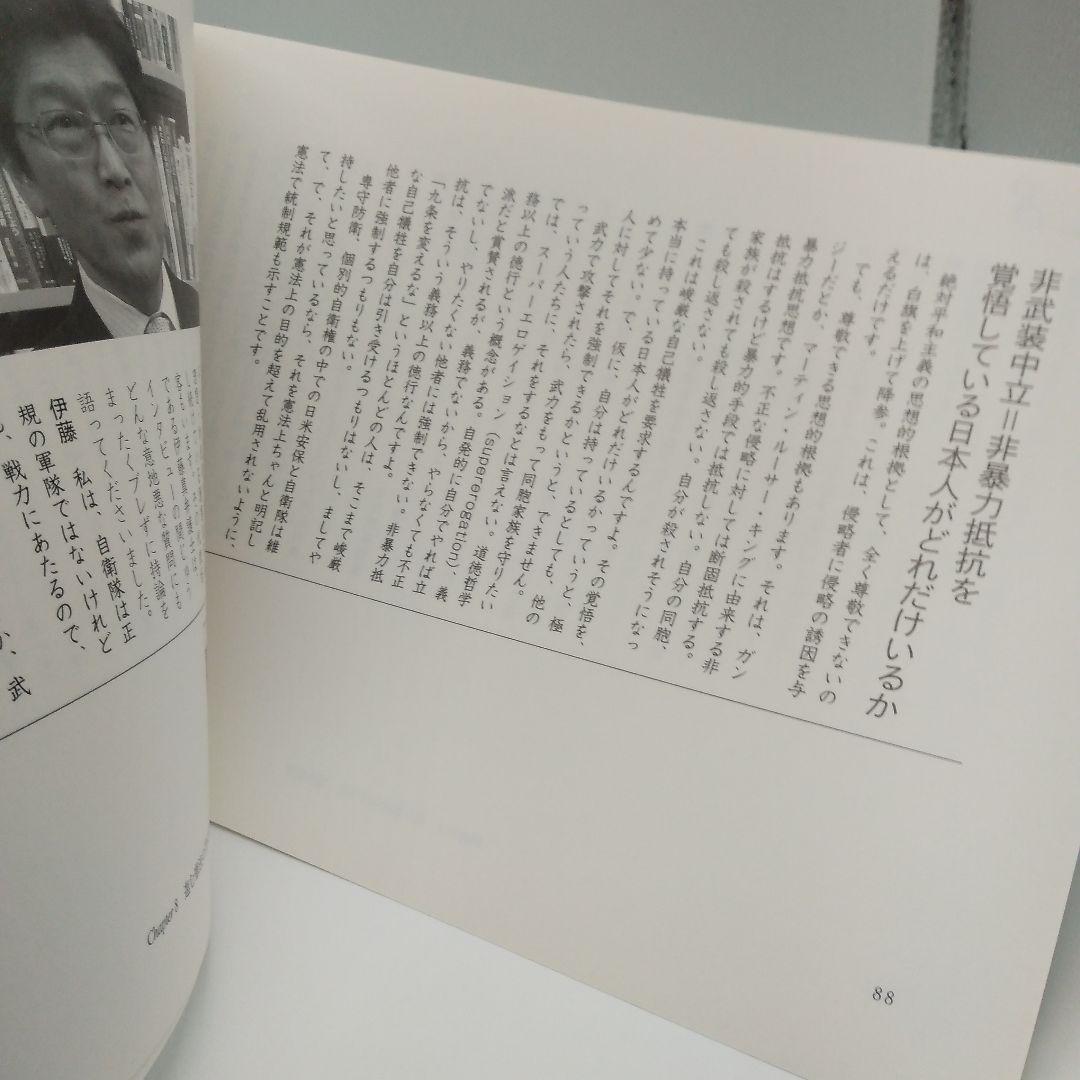 非武装中立＝非暴力抵抗を
覚悟している日本人がどれだけいるか
絶対平和主義の思想的根拠として、全く尊敬できないの
は、白旗を上げて降参。これは、侵略者に侵略の誘因を与
えるだけです。
でも、尊敬できる思想的根拠もあります。それは、ガン
ジーだとか、マーティン・ルーサー・キングに由来する非
暴力抵抗思想です。不正な侵略に対しては断固抵抗する。
抵抗はするけど暴力的手段では抵抗しない。自分の同胞、
家族が殺されても殺し返さない。自分が殺されそうになっ
ても殺し返さない。
これは峻厳な自己犠牲を要求するんですよ。その覚悟を、
本当に持っている日本人がどれだけいるかっていうと、極
めて少ない。で、仮に、自分は持っているとしても、他の
人に対してそれを強制できるかというと、できません。
武力で攻撃されたら、武力をもって同胞家族を守りたい
っていう人たちに、それをするなとは言えない。道徳哲学
では、スーパーエロゲイション（supererogation）、義
務以上の徳行という概念がある。自発的に自分でやれば立
派だと賞賛されるが、義務でないから、やらなくても不正
でないし、やりたくない他者には強制できない。非暴力抵
抗は、そういう義務以上の徳行なんですよ。
「九条を変えるな」というほとんどの人は、そこまで峻厳
な自己犠牲を自分は引き受けるつもりはないし、ましてや
他者に強制するつもりもない。
専守防衛、個別的自衛権の中での日米安保と自衛隊は維
持したいと思っているなら、それを憲法上ちゃんと明記し
て、で、それが憲法上の目的を超えて乱用されないように、
憲法で統制規範も示すことです。
88
である伊藤真弁護士は、
インタビューの間じゅう
どんな意地悪な質問にも
まったくブレずに持論を
語ってくださいました。
伊藤 私は、自衛隊は正
規の軍隊ではないけれど
も、戦力にあたるので、
武
Chapter 8